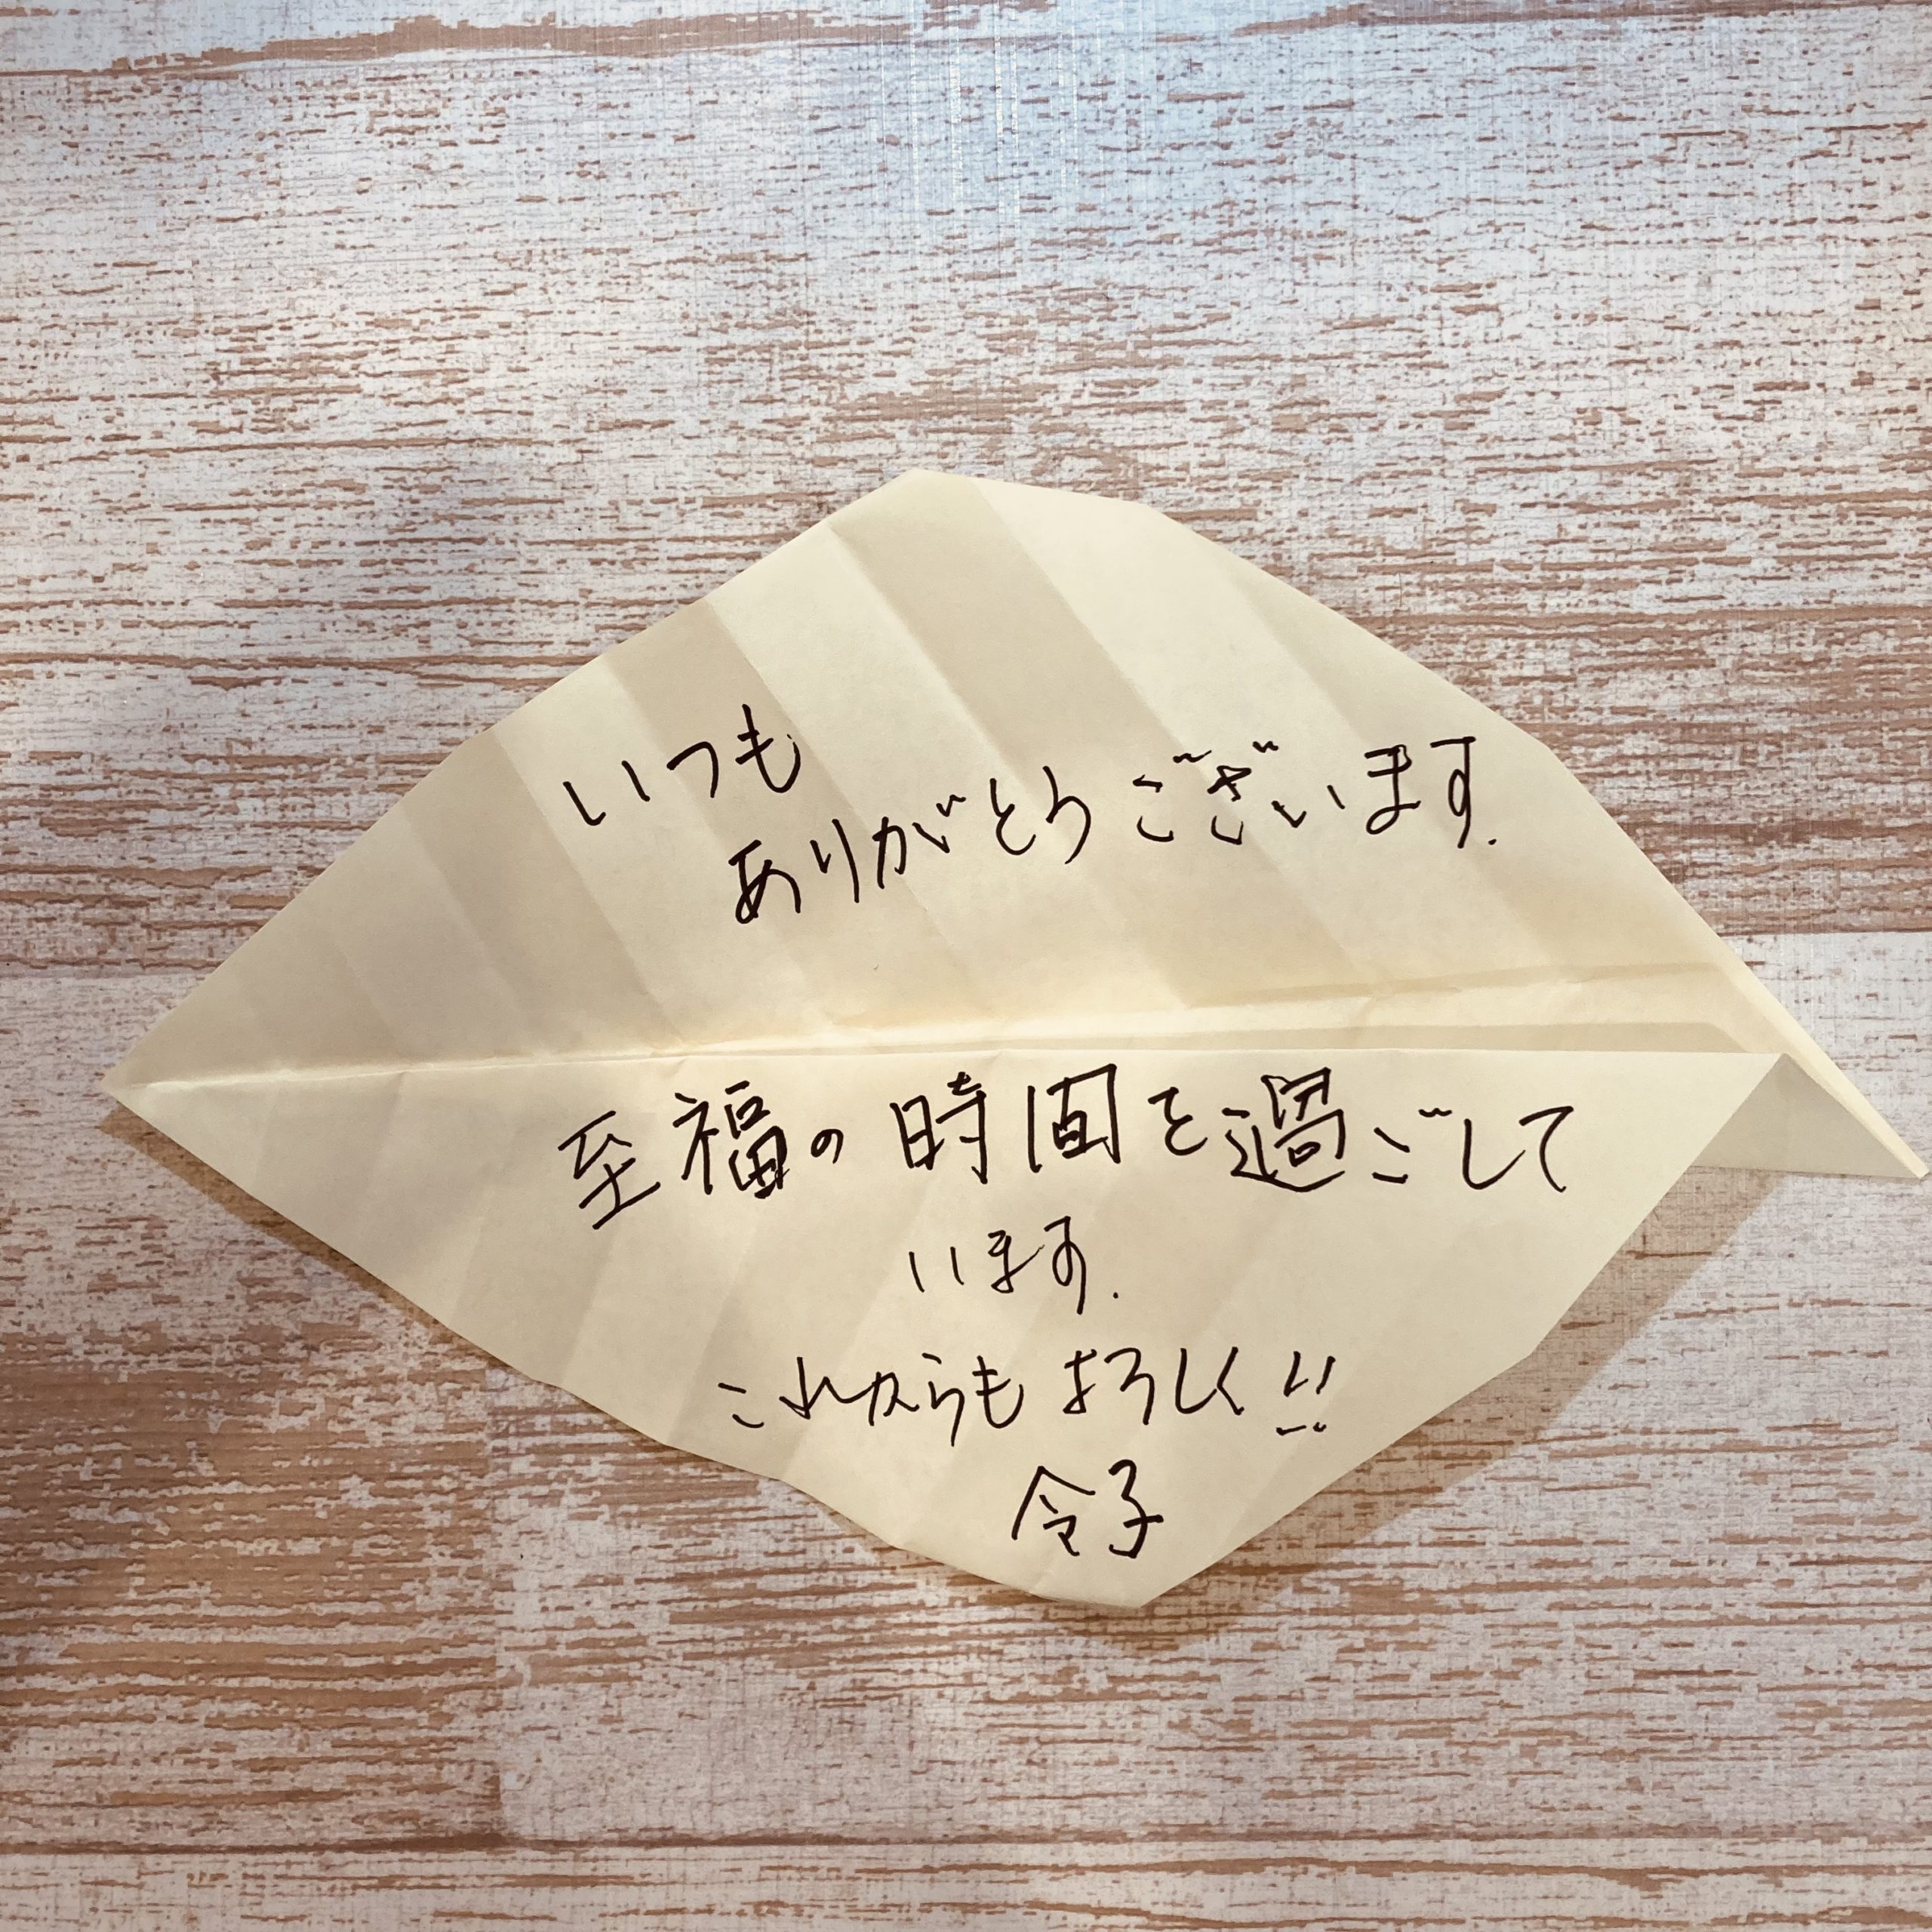 いつも
ありがとうございます.
至福の時間を過ごして
います.
これからもよろしく!!
令子